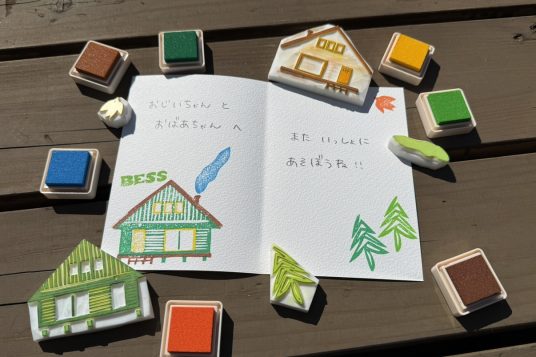 おじいちゃん と
おばあちゃん へ
BESS
また いっしょに
あそぼうね!!